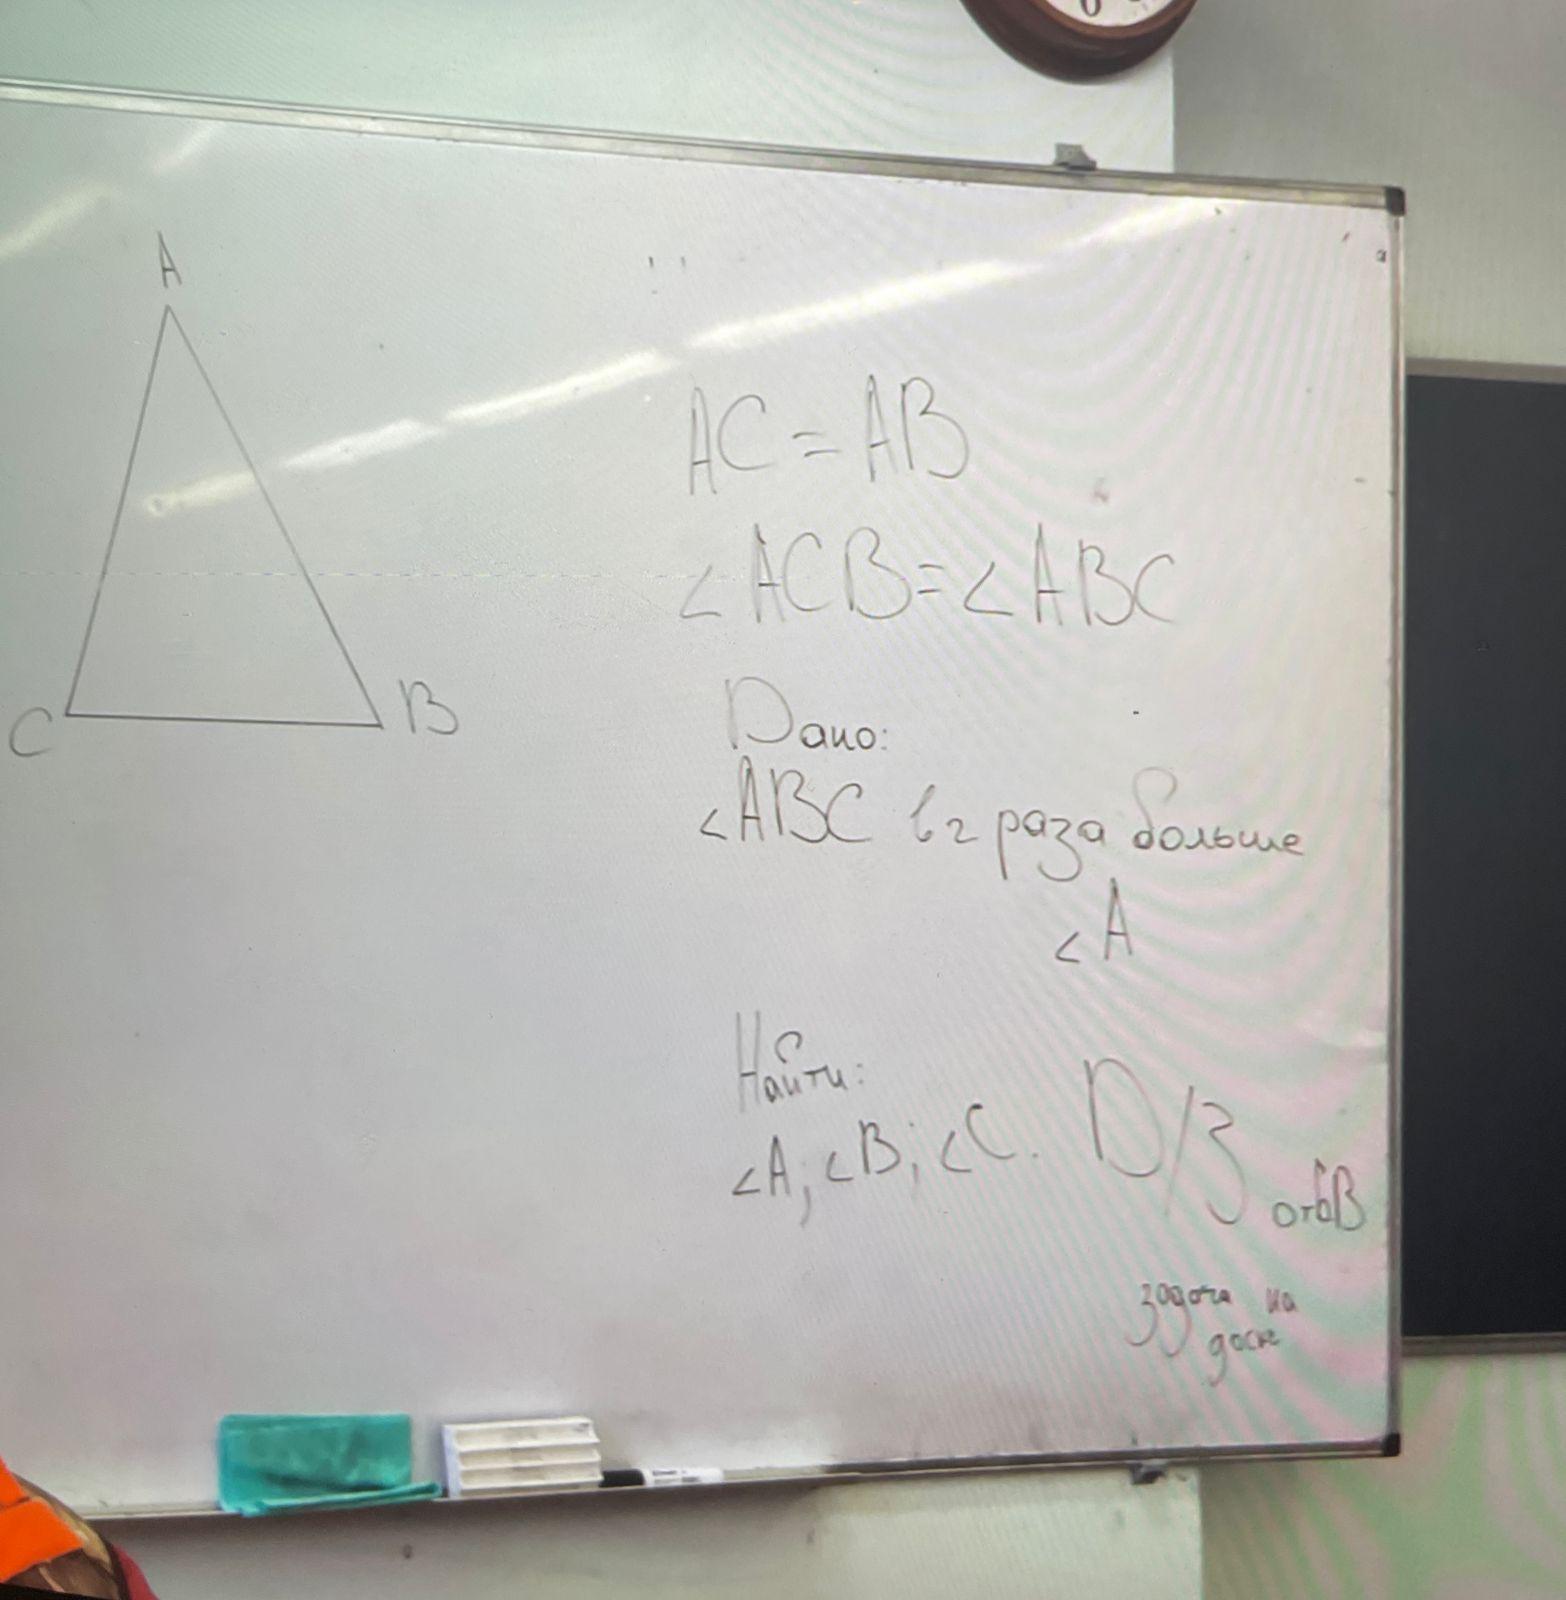 A
C
B
AC = AB
∠ACB = ∠ABC
Дано:
∠ABC в 2 раза больше
∠A
Найти:
∠A; ∠B; ∠C.
D/З
задача на
доске
6